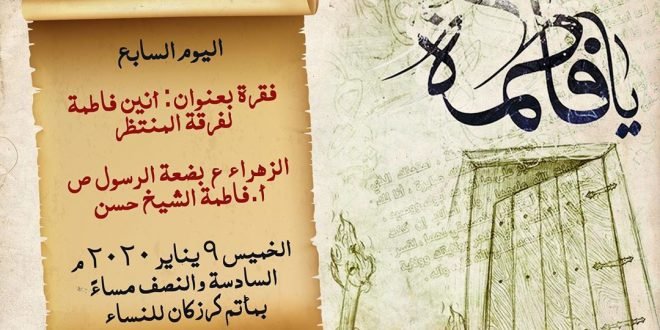 اليوم السابع
فقرة بعنوان: أنين فاطمة
لفرقة المنتظر
الزهراء ع بضعة الرسول ص
أ.فاطمة الشيخ حسن
الخميس ٩ يناير ٢٠٢٠ م
السادسة والنصف مساءً
بمأتم كرزكان للنساء
يا فاطمة